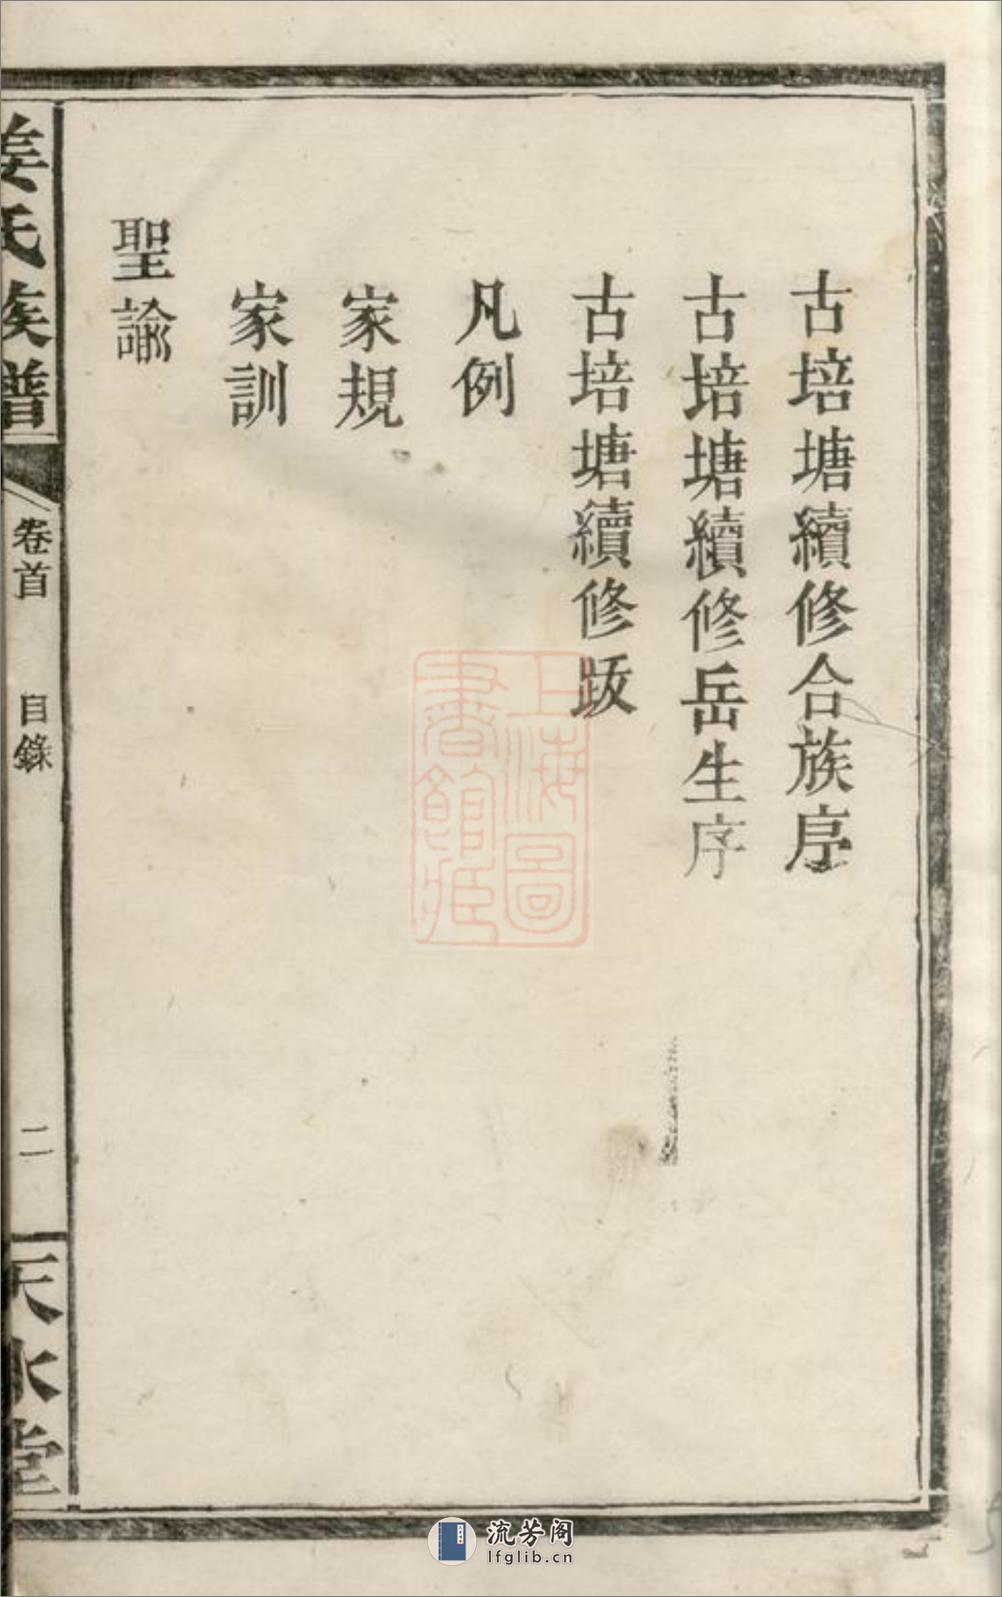 古培塘續修合族序
古培塘續修岳生序
古培塘續修跋
凡例
家規
家訓
聖諭
姜氏族譜
卷首
目錄
二
天水堂
上海圖
書館藏
流芳阁
lfglib.cn